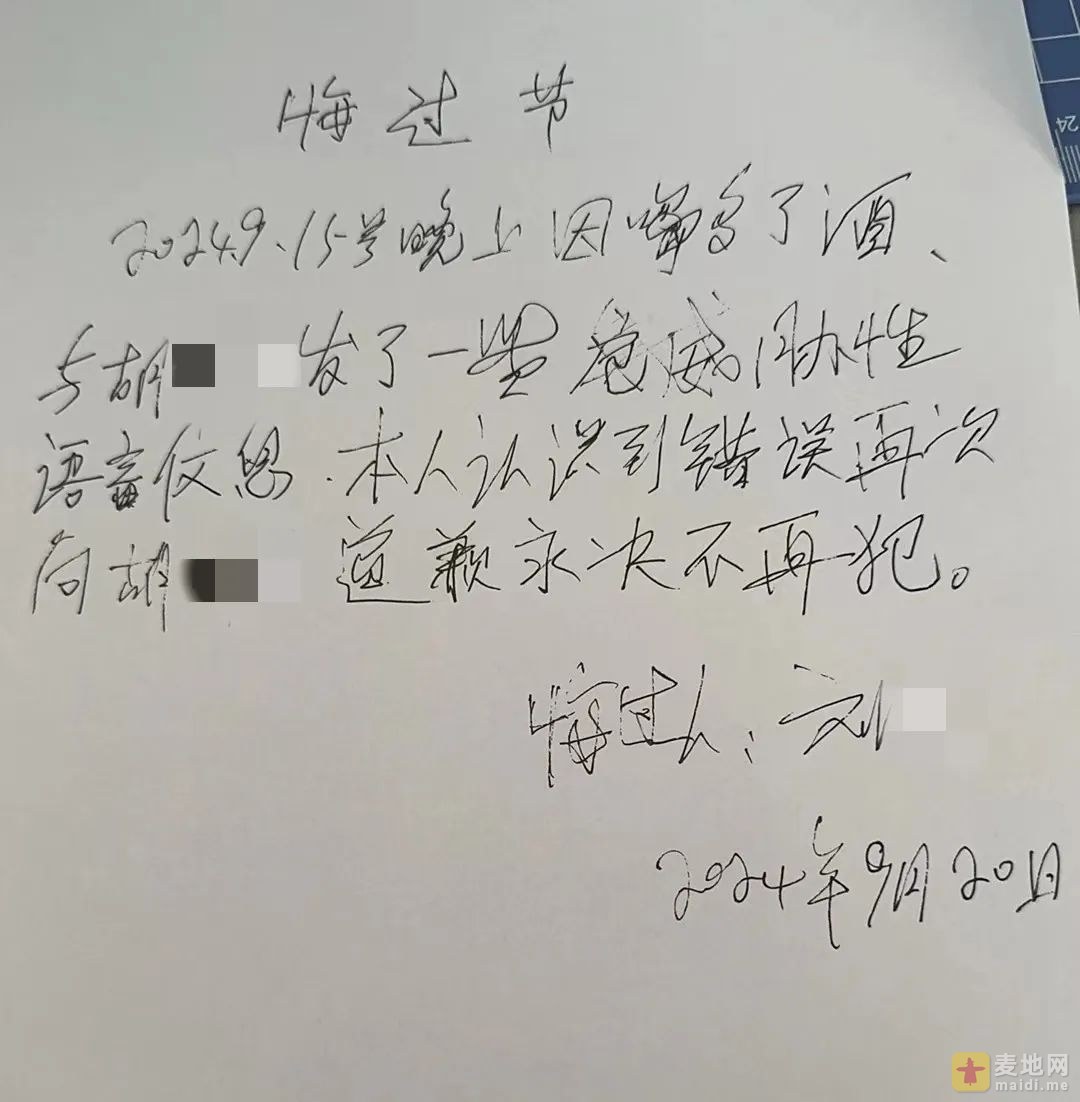 悔过节
2024.9.15号晚上因多了酒、
与胡 发了一些威胁性
语音信息.本人认识到错误再次
向胡 道歉永决不再犯。
悔过人:刘
2024年9月20日
24
麦地网
maidi.me